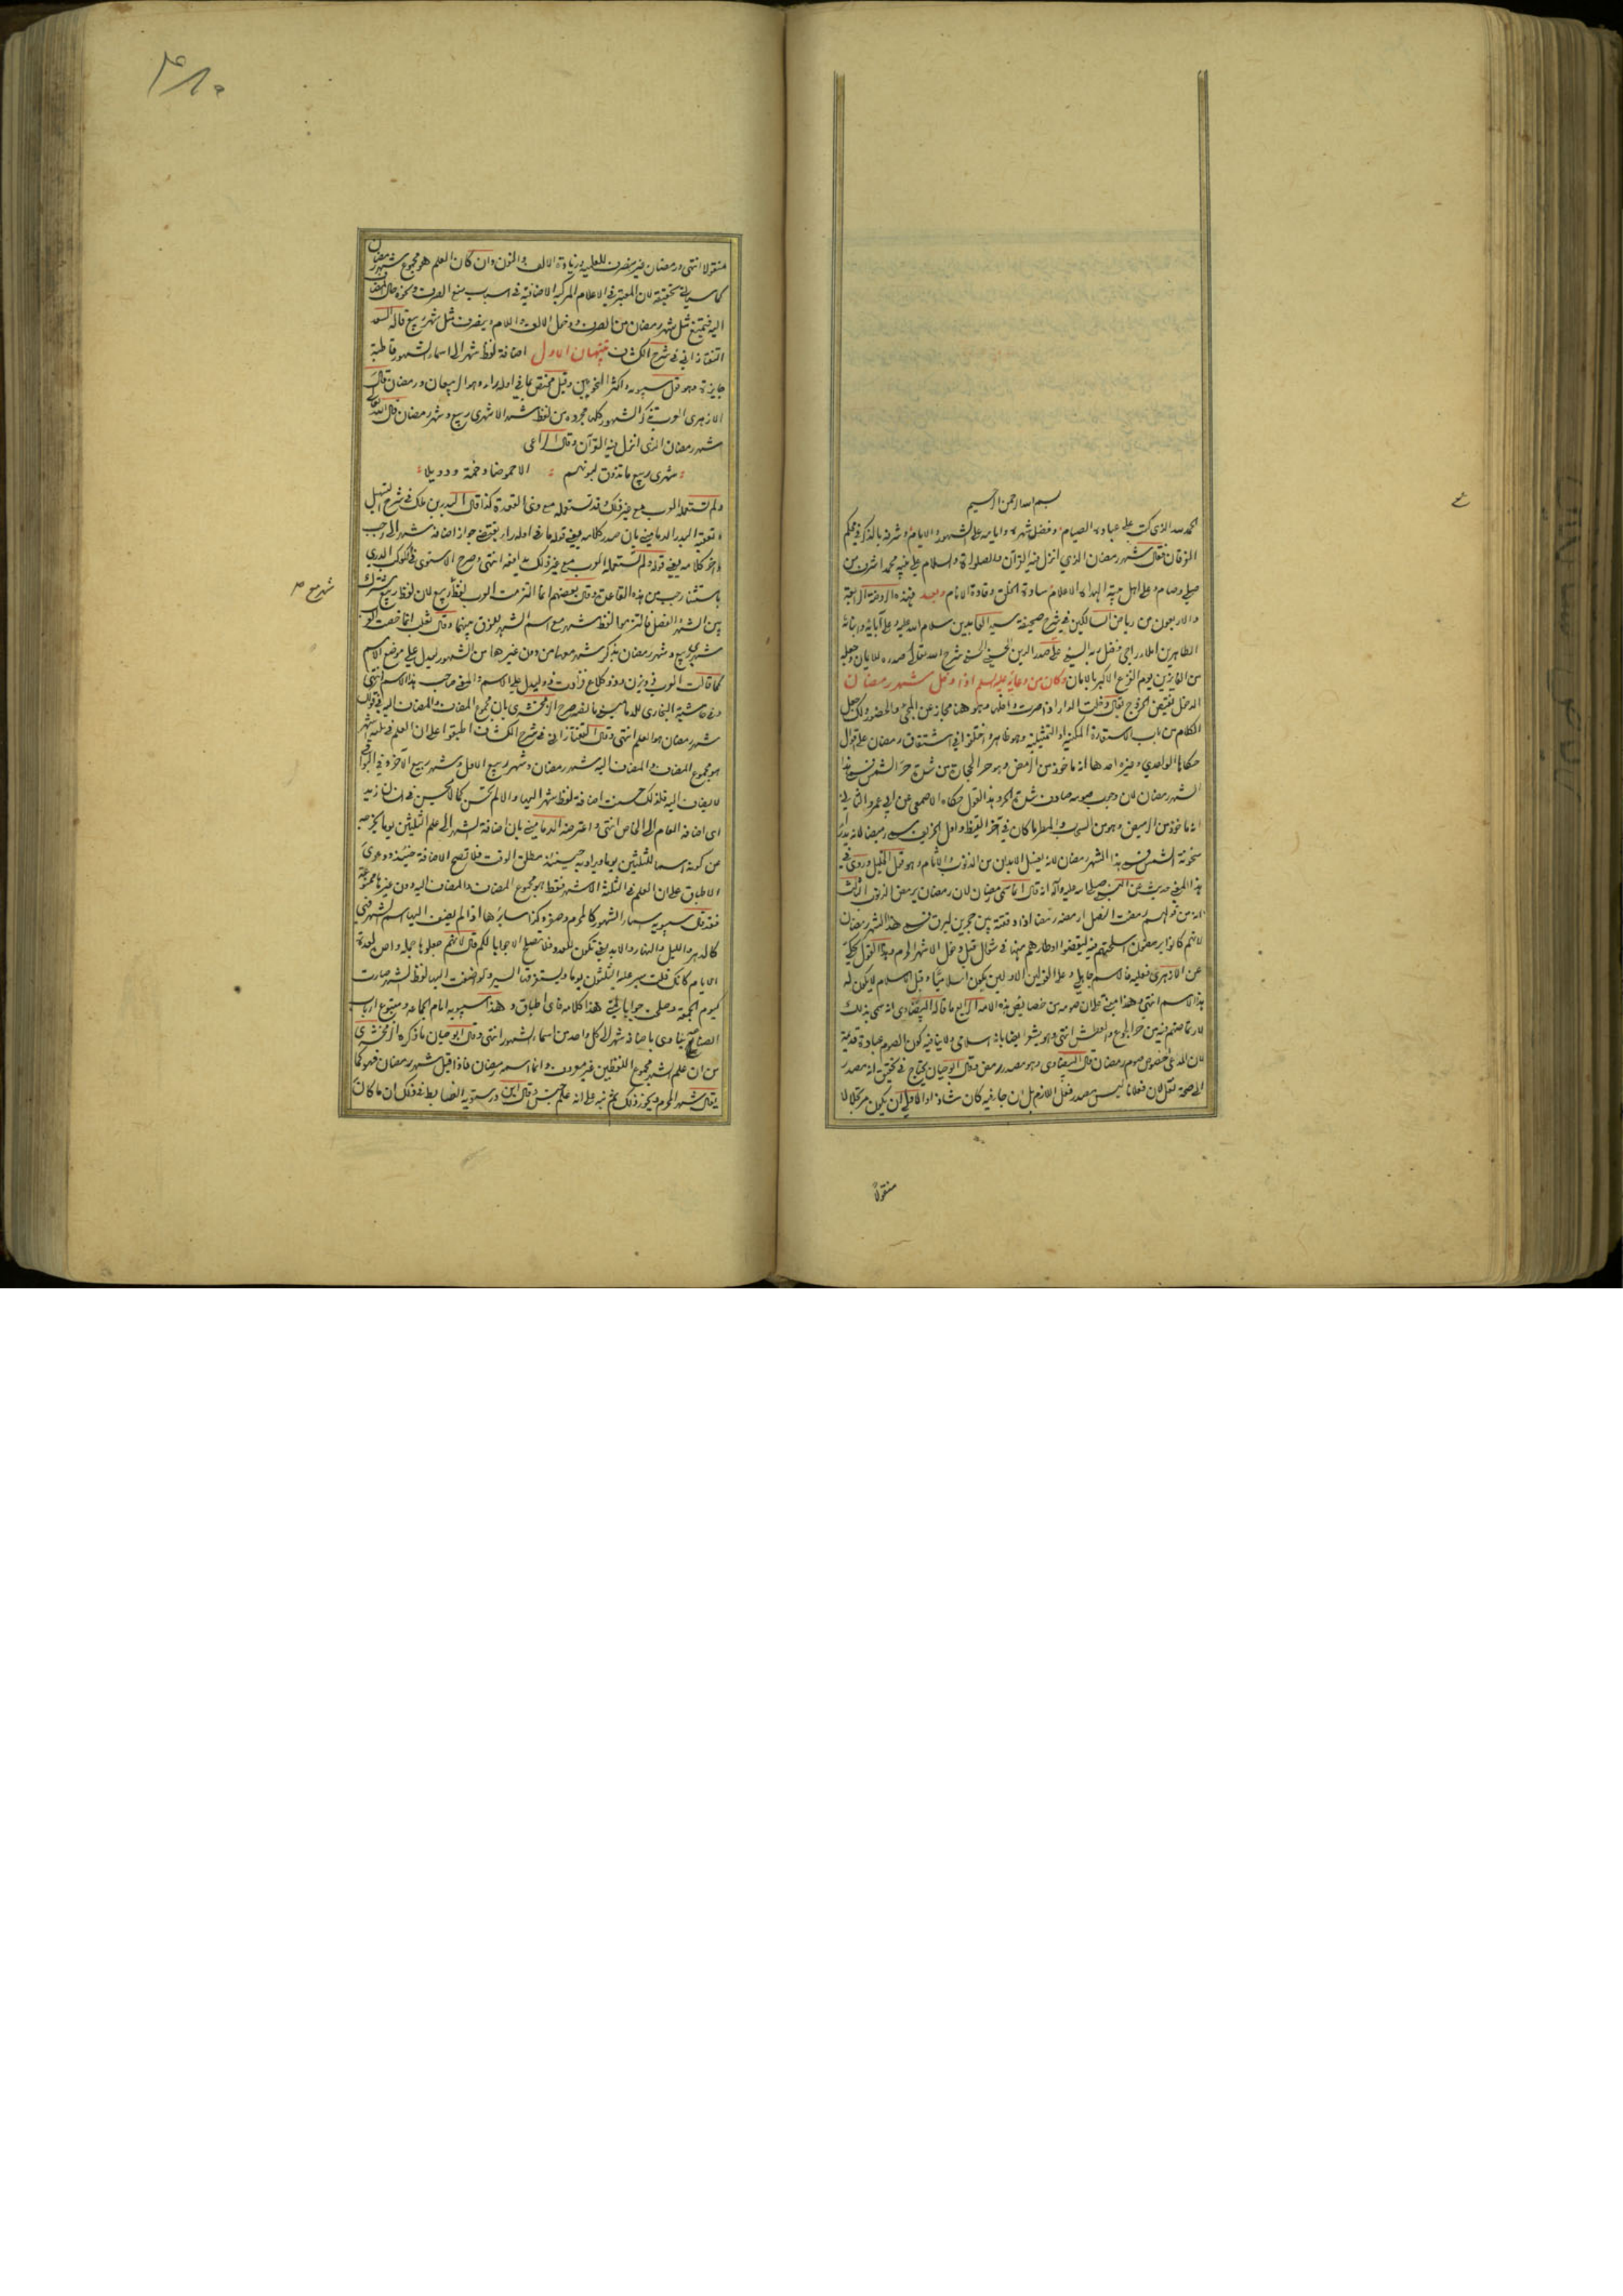 بسم الله الرحمن الرحيم
الحمد لله الذي كتب على عباده الصيام وفضل شهره وايامه على الشهور والايام وشرفه بالذكر في محكم
الفرقان فقال شهر رمضان الذي انزل فيه القرآن والصلوة والسلام على نبيه محمد اشرف من
صلى وصام وعلى اهل بيته الهداة الاعلام سادة الخلق وقادة الانام وبعد فهذه الروضة الرابعة
والاربعون من رياض السالكين في شرح صحيفة سيد العابدين سلام الله عليه وعلى آبائه وابنائه
الطاهرين املاء راجي فضل ربه السني علي صدر الدين الحسيني الحسني شرح الله تعالى صدره للايمان وجعله
من الفايزين يوم الفزع الاكبر بالامان وكان من دعائه عليه السلم اذا دخل شهر رمضان
الدخول نقيض الخروج تقول دخلت الدار اذا صرت داخلها وهو هنا مجاز عن المجئ والحضور ولك جعل
الكلام من باب الاستعارة المكنية او التمثيلية وهو ظاهر واختلفوا في اشتقاق رمضان على اقوال
حكاها الواحدي وغيره احدها انه ماخوذ من الرمض وهو حر الحجارة من شدة حر الشمس فسمي هذا
الشهر رمضان لان وجوب صومه صادف شدة الحر وهذا القول حكاه الاصمعي عن ابي عمرو الثاني
انه ماخوذ من الرميض وهو من السحاب والمطر ما كان في آخر القيظ واول الخريف سمي رميضا لانه يدرأ
سخونة الشمس فسمي هذا الشهر رمضان لانه يغسل الابدان من الذنوب والاثام وهو قول الخليل وروي في
هذا المعنى حديث عن النبي صلى الله عليه وآله انه قال انما سمي رمضان لان رمضان يرمض الذنوب الثالث
انه من قولهم رمضت النصل ارمضه رمضا اذا دققته بين حجرين ليرق فسمي هذا الشهر رمضان
لانهم كانوا يرمضون اسلحتهم فيه ليقضوا اوطارهم منها في شوال قبل دخول الاشهر الحرم وهذا القول يحكى
عن الازهري فعليه فالاسم جاهلي وعلى القولين الاولين يكون اسلاميا وقبل الاسلام لا يكون له
هذا الاسم انتهى وهذا مبني على ان صومه من خصايص هذه الامة الرابع ما قاله البيضاوي انه سمي بذلك
لارتماضهم فيه من حر الجوع والعطش انتهى وهو يشعر ايضا بانه اسلامي ولا ينافيه كون الصوم عبادة قديمة
لان المدعى خصوص صوم رمضان قال البيضاوي وهو مصدر رمض وقال ابو حيان يحتاج في تحقيق انه مصدر
الى صحة نقل لان فعلانا ليس مصدر فعل اللازم بل ان جاء فيه كان شاذا والاولى ان يكون مرتجلا لا
منقولا
منقولا انتهى ورمضان غير منصرف للعلمية وزيادة الالف والنون وان كان العلم هو مجموع شهر رمضان
كما سياتي تحقيقه لان المعتبر في الاعلام المركبة الاضافية في اسباب منع الصرف ونحوه حال المضاف
اليه فيمتنع مثل شهر رمضان من الصرف ودخول الالف واللام وينصرف مثل شهر ربيع قاله السعد
التفتازاني في شرح الكشاف تنبيهان الاول اضافة لفظ شهر الى اسماء الشهور قاطبة
جايزة وهو قول سيبويه واكثر النحويين وقيل مختص بما في اوله راء وهو الربيعان ورمضان قال
الازهري العرب تذكر الشهور كلها مجردة من لفظ شهر الا شهري ربيع وشهر رمضان قال الله تعالى
شهر رمضان الذي انزل فيه القرآن وقال الراعي
شهري ربيع ما تذوق لبونهم الا حموضا وخمة ودويلا
ولم تستعمل العرب مع غير ذلك وقد تستعمله مع ذي القعدة كذا قال البدر بن ملك في شرح التسهيل
وتعقبه البدر الدماميني بان صدر كلامه يعني قوله ما في اوله راء يقتضي جواز اضافة شهر الى رجب
وآخر كلامه يعني قوله ولم تستعمل العرب مع غير ذلك يدافعه انتهى وصرح الاسنوي في الكوكب الدري
باستثناء رجب من هذه القاعدة وقال بعضهم انما التزمت العرب لفظ ربيع لان لفظ ربيع مشترك
بين الشهر والفصل فالتزموا لفظ شهر مع اسم الشهر للفرق بينهما وقال ثعلب انما خصت العرب
شهري ربيع وشهر رمضان بذكر شهر معها من دون غيرها من الشهور ليدل على موضع الاسم
كما قالت العرب ذو يزن وذو كلاع فزادت ذو ليدل على الاسم والمعنى صاحب هذا الاسم انتهى
وفي حاشية البخاري للدماميني ما لفظه صرح الزمخشري بان مجموع المضاف والمضاف اليه في قولك
شهر رمضان هو العلم انتهى وقال التفتازاني في شرح الكشاف اطبقوا على ان العلم في ثلثة اشهر
هو مجموع المضاف والمضاف اليه شهر رمضان وشهر ربيع الاول وشهر ربيع الآخر وفي البواقي
لا يضاف اليه فلذلك حسنت اضافة لفظ شهر اليها والا لم تحسن كما لا يحسن انسان زيد
اي اضافة العام الى الخاص انتهى واعترضه الدماميني بان اضافة الشهر الى علم الثلثين يوما يخرجه
عن كونه اسما للثلثين يوما ويراد به حينئذ مطلق الوقت فلا تصح الاضافة حينئذ ودعوى
الاطباق على ان العلم في الثلثة الاشهر فقط هو مجموع المضاف والمضاف اليه دون غيرها ممنوعة
فقد قال سيبويه اسماء الشهور كالمحرم وصفر وكذا سائرها اذا لم يضف اليها اسم الشهر فهي
كالدهر والليل والنهار والابد يعني تكون للعدد فلا تصلح الا جوابا لكم قال لانهم جعلوها جملة واحدة لعدة
الايام كانك قلت سير عليه الثلثون يوما ويستغرقها السير ولو اضفت اليها لفظ شهر صارت
كيوم الجمعة وصلحت جوابا لمتى هذا كلامه فاي اطباق وهذا سيبويه امام الجماعة ومتبوع ارباب
الصناعة ينادي باضافة شهر الى كل واحد من اسماء الشهور انتهى وقال ابو حيان ما ذكره الزمخشري
من ان علم الشهر مجموع اللفظين غير معروف وانما اسمه رمضان فاذا قيل شهر رمضان فهو كما
يقال شهر المحرم ويجوز ذلك ثم نبه على انه علم جنس وقال ابن درستويه الضابط في ذلك ان ما كان